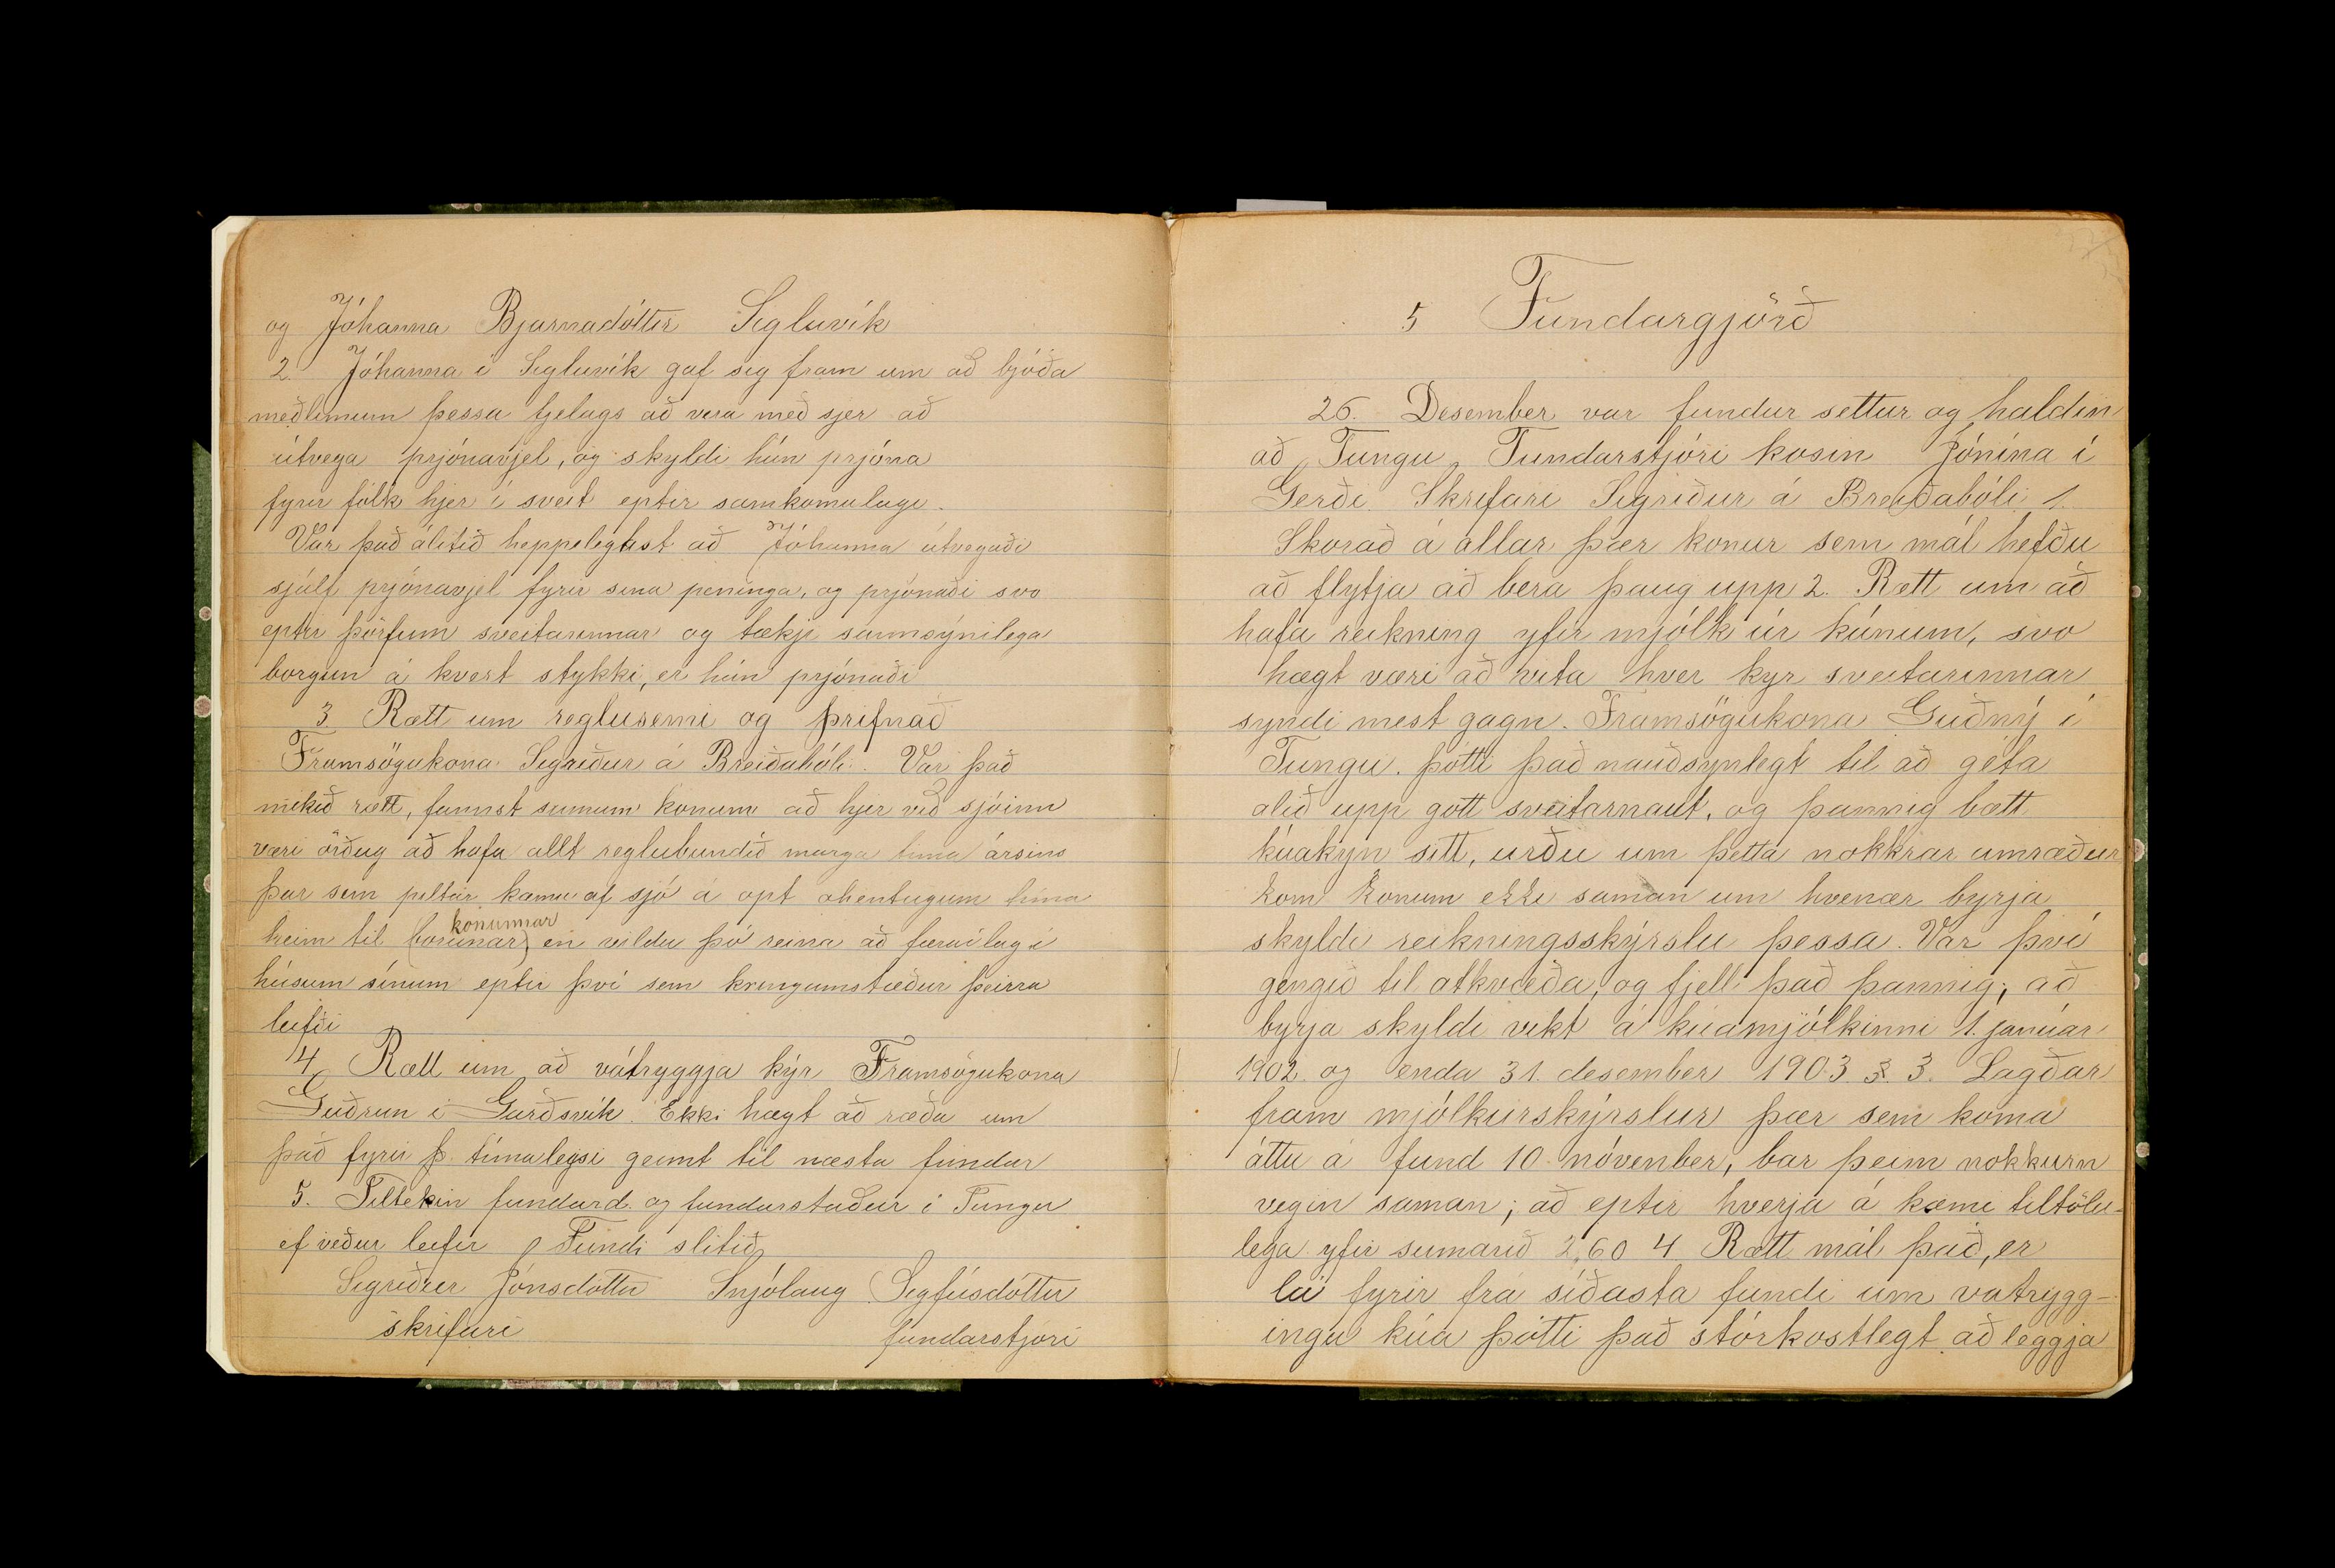 og Jóhanna Bjarnadóttir Sigluvík
2. Jóhanna í Sigluvík gaf sig fram um að bjóða
meðlimum þessa fjelags að vera með sjer að
útvega prjónavjel, og skyldi hún prjóna
fyrir fólk hjer í sveit eptir samkomulagi.
Var það álitið heppilegast að Jóhanna útvegaði
sjálf prjónavjel fyrir sína peninga, og prjónaði svo
eptir þörfum sveitarinnar og tæki sannsýnilega
borgun á kvert stykki, er hún prjónaði
3 Rætt um reglusemi og þrifnað
Framsögukona Sigríður á Breiðabóli. Var það
mikið rætt, fannst sumum konum að hjer við sjóinn
væri örðug að hafa allt reglubundið marga tíma ársins
þar sem piltar kæmu af sjó á opt óhentugum tíma
heim til (borunar) konunnar en vildu þó reina að færa í lag í
húsum sínum eptir því sem kringumstæður þeirra
leifði
4 Rætt um að vátryggja kýr Framsögukona
Guðrun í Garðsvík. Ekki hægt að ræða um
það fyrir þ. tímaleysi geimt til næsta fundar
5. Tiltekin fundard. og fundarstaður í Tungu
ef veður leifir Fundi slitið
Sigríður Jónsdóttir Snjólaug Sigfúsdóttir
skrifari fundarstjóri
5 Fundargjörð
26. Desember var fundur settur og haldin
að Tungu, Fundarstjóri kosin Jónína í
Gerði Skrifari Sigríður á Breiðabóli 1.
Skorað á allar þær konur sem mál hefðu
að flytja að bera þaug upp 2. Rætt um að
hafa reikning yfir mjólk úr kúnum, svo
hægt væri að vita hver kyr sveitarinnar
syndi mest gagn. Framsögukona Guðný í
Tungu. þótti það nauðsynlegt til að géta
alið upp gott sveitarnaut, og þannig bætt
kúakyn sitt, urðu um þetta nokkrar umræður
kom konum ekki saman um hvenær byrja
skyldi reikningsskýrslu þessa. Var því
gengið til atkvæða, og fjell það þannig, að
byrja skyldi vikt á kúamjólkinni 1. janúar
1902 og enda 31. desember 1903 3. 3. Lagðar
fram mjólkurskýrslur þær sem koma
áttu á fund 10. nóvenber, bar þeim nokkurn
vegin saman; að eptir hverja á kæmi tiltölu-
lega yfir sumarið 2,60 4 Rætt mál það, er
lá fyrir frá síðasta fundi um vatrygg-
ingu kúa þótti það stórkostlegt að leggja